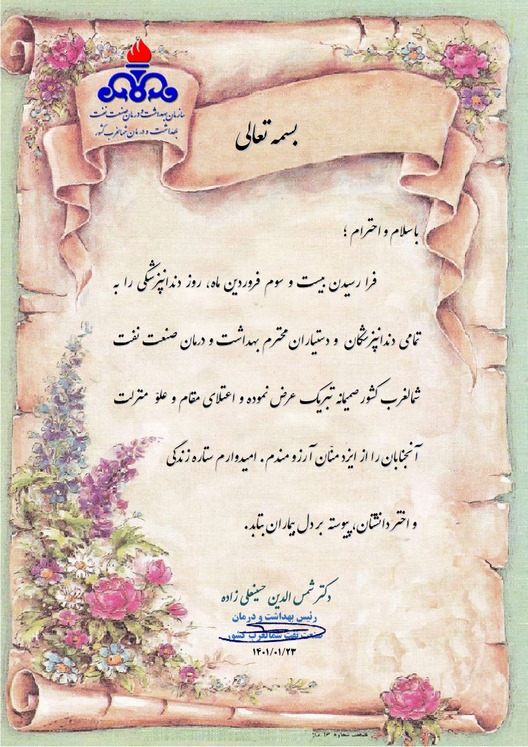 سازمان بهداشت و درمان صنعت نفت
بهداشت و درمان شمالغرب کشور
بسمه تعالی
باسلام و احترام ؛
فرا رسیدن بیست و سوم فروردین ماه، روز دندانپزشکی را به
تمامی دندانپزشکان و دستیاران محترم بهداشت و درمان صنعت نفت
شمالغرب کشور صمیمانه تبریک عرض نموده و اعتلای مقام و علوّ منزلت
آنجنابان را از ایزد منّان آرزومندم. امیدوارم ستاره زندگی
و اختر دانشتان، پیوسته بر دل بیماران بتابد.
دکتر شمس الدین حسینعلی زاده
رئیس بهداشت و درمان
صنعت نفت شمالغرب کشور
۱۴۰۱/۰۱/۲۳